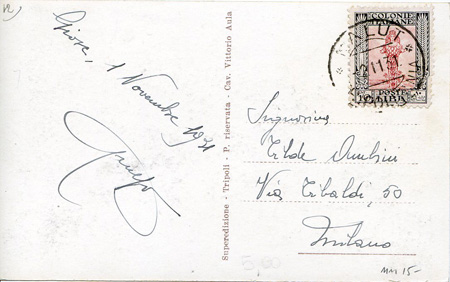 Giosc, 1 Novembre 1931
Superedizione - Tripoli - P. riservata - Cav. Vittorio Aula
COLONIE
ITALIANE
NALUT
POSTE
LIBIA
Signorina
Tilde Ambini
Via Tibaldi, 50
Milano
15-